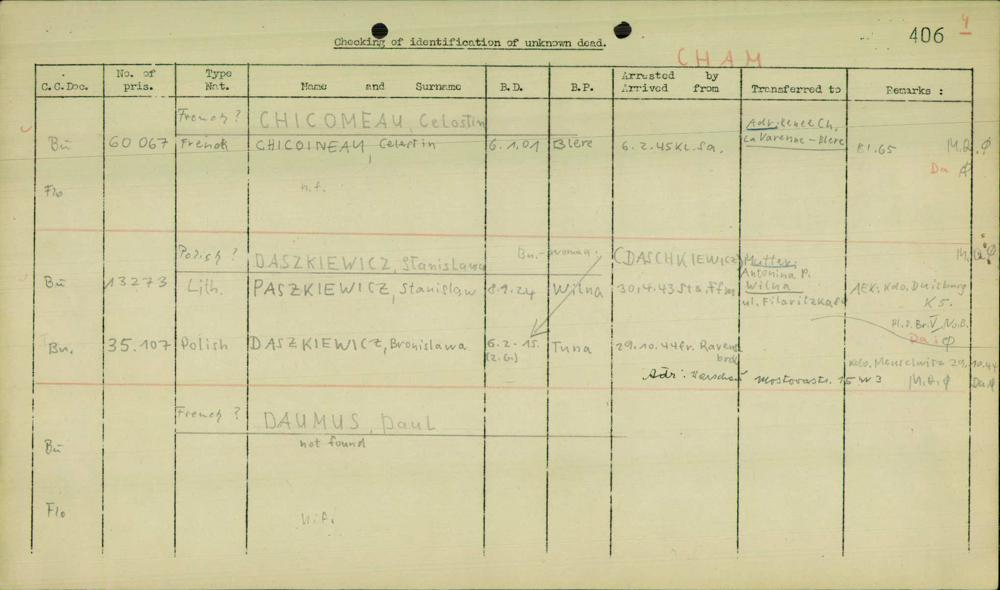 406 4
Checking of identification of unknown dead.
CHAM
C.C.Doc. No. of pris. Type Nat. Name and Surname B.D. B.P. Arrested by Arrived from Transferred to Remarks :
French ? CHICOMEAU, Celestin Ch.
Bu 60 067 French CHICOINEAU, Celestin 6.1.01 Blere 6.2.45 KL. Sa. La Varenne - Blere Bl. 65 M.A. Ø
Da Ø
Flo n.f.
Polish ? DASZKIEWICZ, Stanislawa Bu. - woman: (DASCHKIEWICZ) Mutter:
Antonina P.
Bu 13273 Lith. PASZKIEWICZ, Stanislaw 8.9.24 Wilna 30.4.43 Sta. Ffm Wilna AEK. Kdo. Duisburg
ul. Filaritzka K 5.
Da: Ø
Bu. 35.107 Polish DASZKIEWICZ, Bronislawa 6.2.15. Tuna 29.10.44 fr. Ravensbrck
(2.G.) Kdo. Meuselwitz 29.10.44
Adr: Warschau Mostovastr. 15 W 3 M.A. Ø Da. Ø
French ? DAUMUS, Paul
Bu not found
Flo n.f.